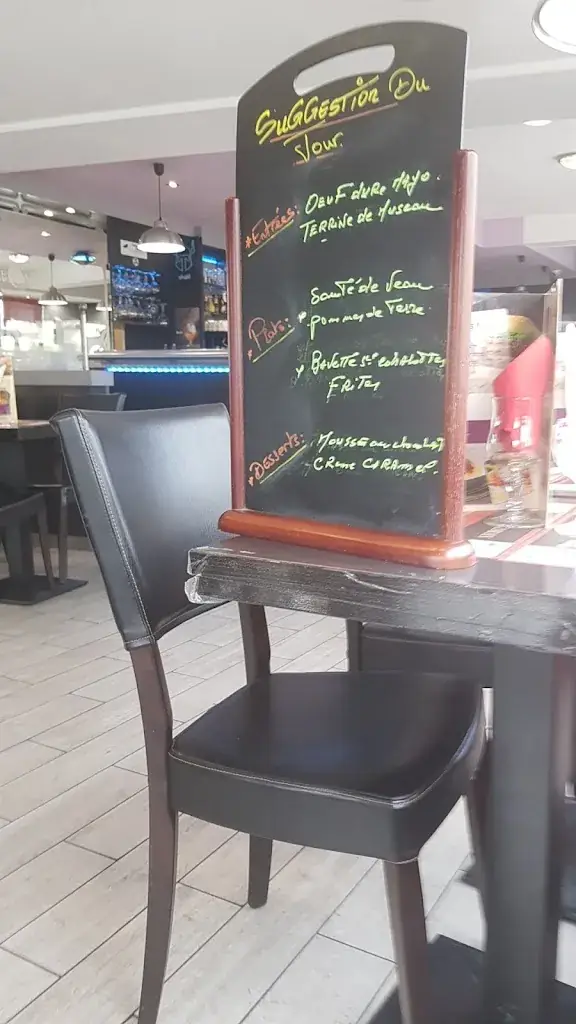 SUGGESTION DU
Jour.
* Entrées: OEUF DURE MAYO.
TERRINE de MUSEAU
* Plats: Sauté de Veau
pommes de Terre.
BAVETTE Sce ECHALOTTES
FRITES
* Desserts: MOUSSE au chocolat
CREME CARAMEL.